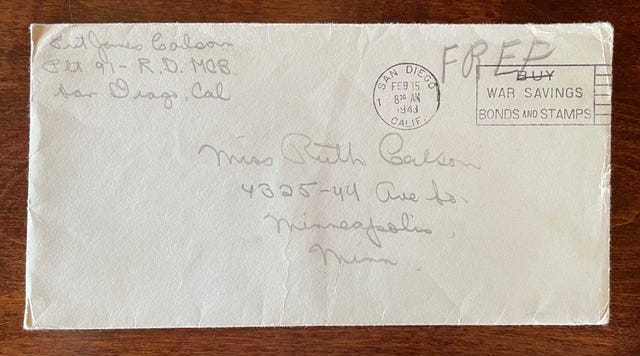 Pvt James Carlson
Plt 91 - R.D. MCB.
San Diego, Cal
FREE
SAN DIEGO
1
FEB 15
8 30 AM
1943
CALIF.
BUY
WAR SAVINGS
BONDS AND STAMPS
Miss Ruth Carlson
4325-44 Ave So.
Minneapolis,
Minn.